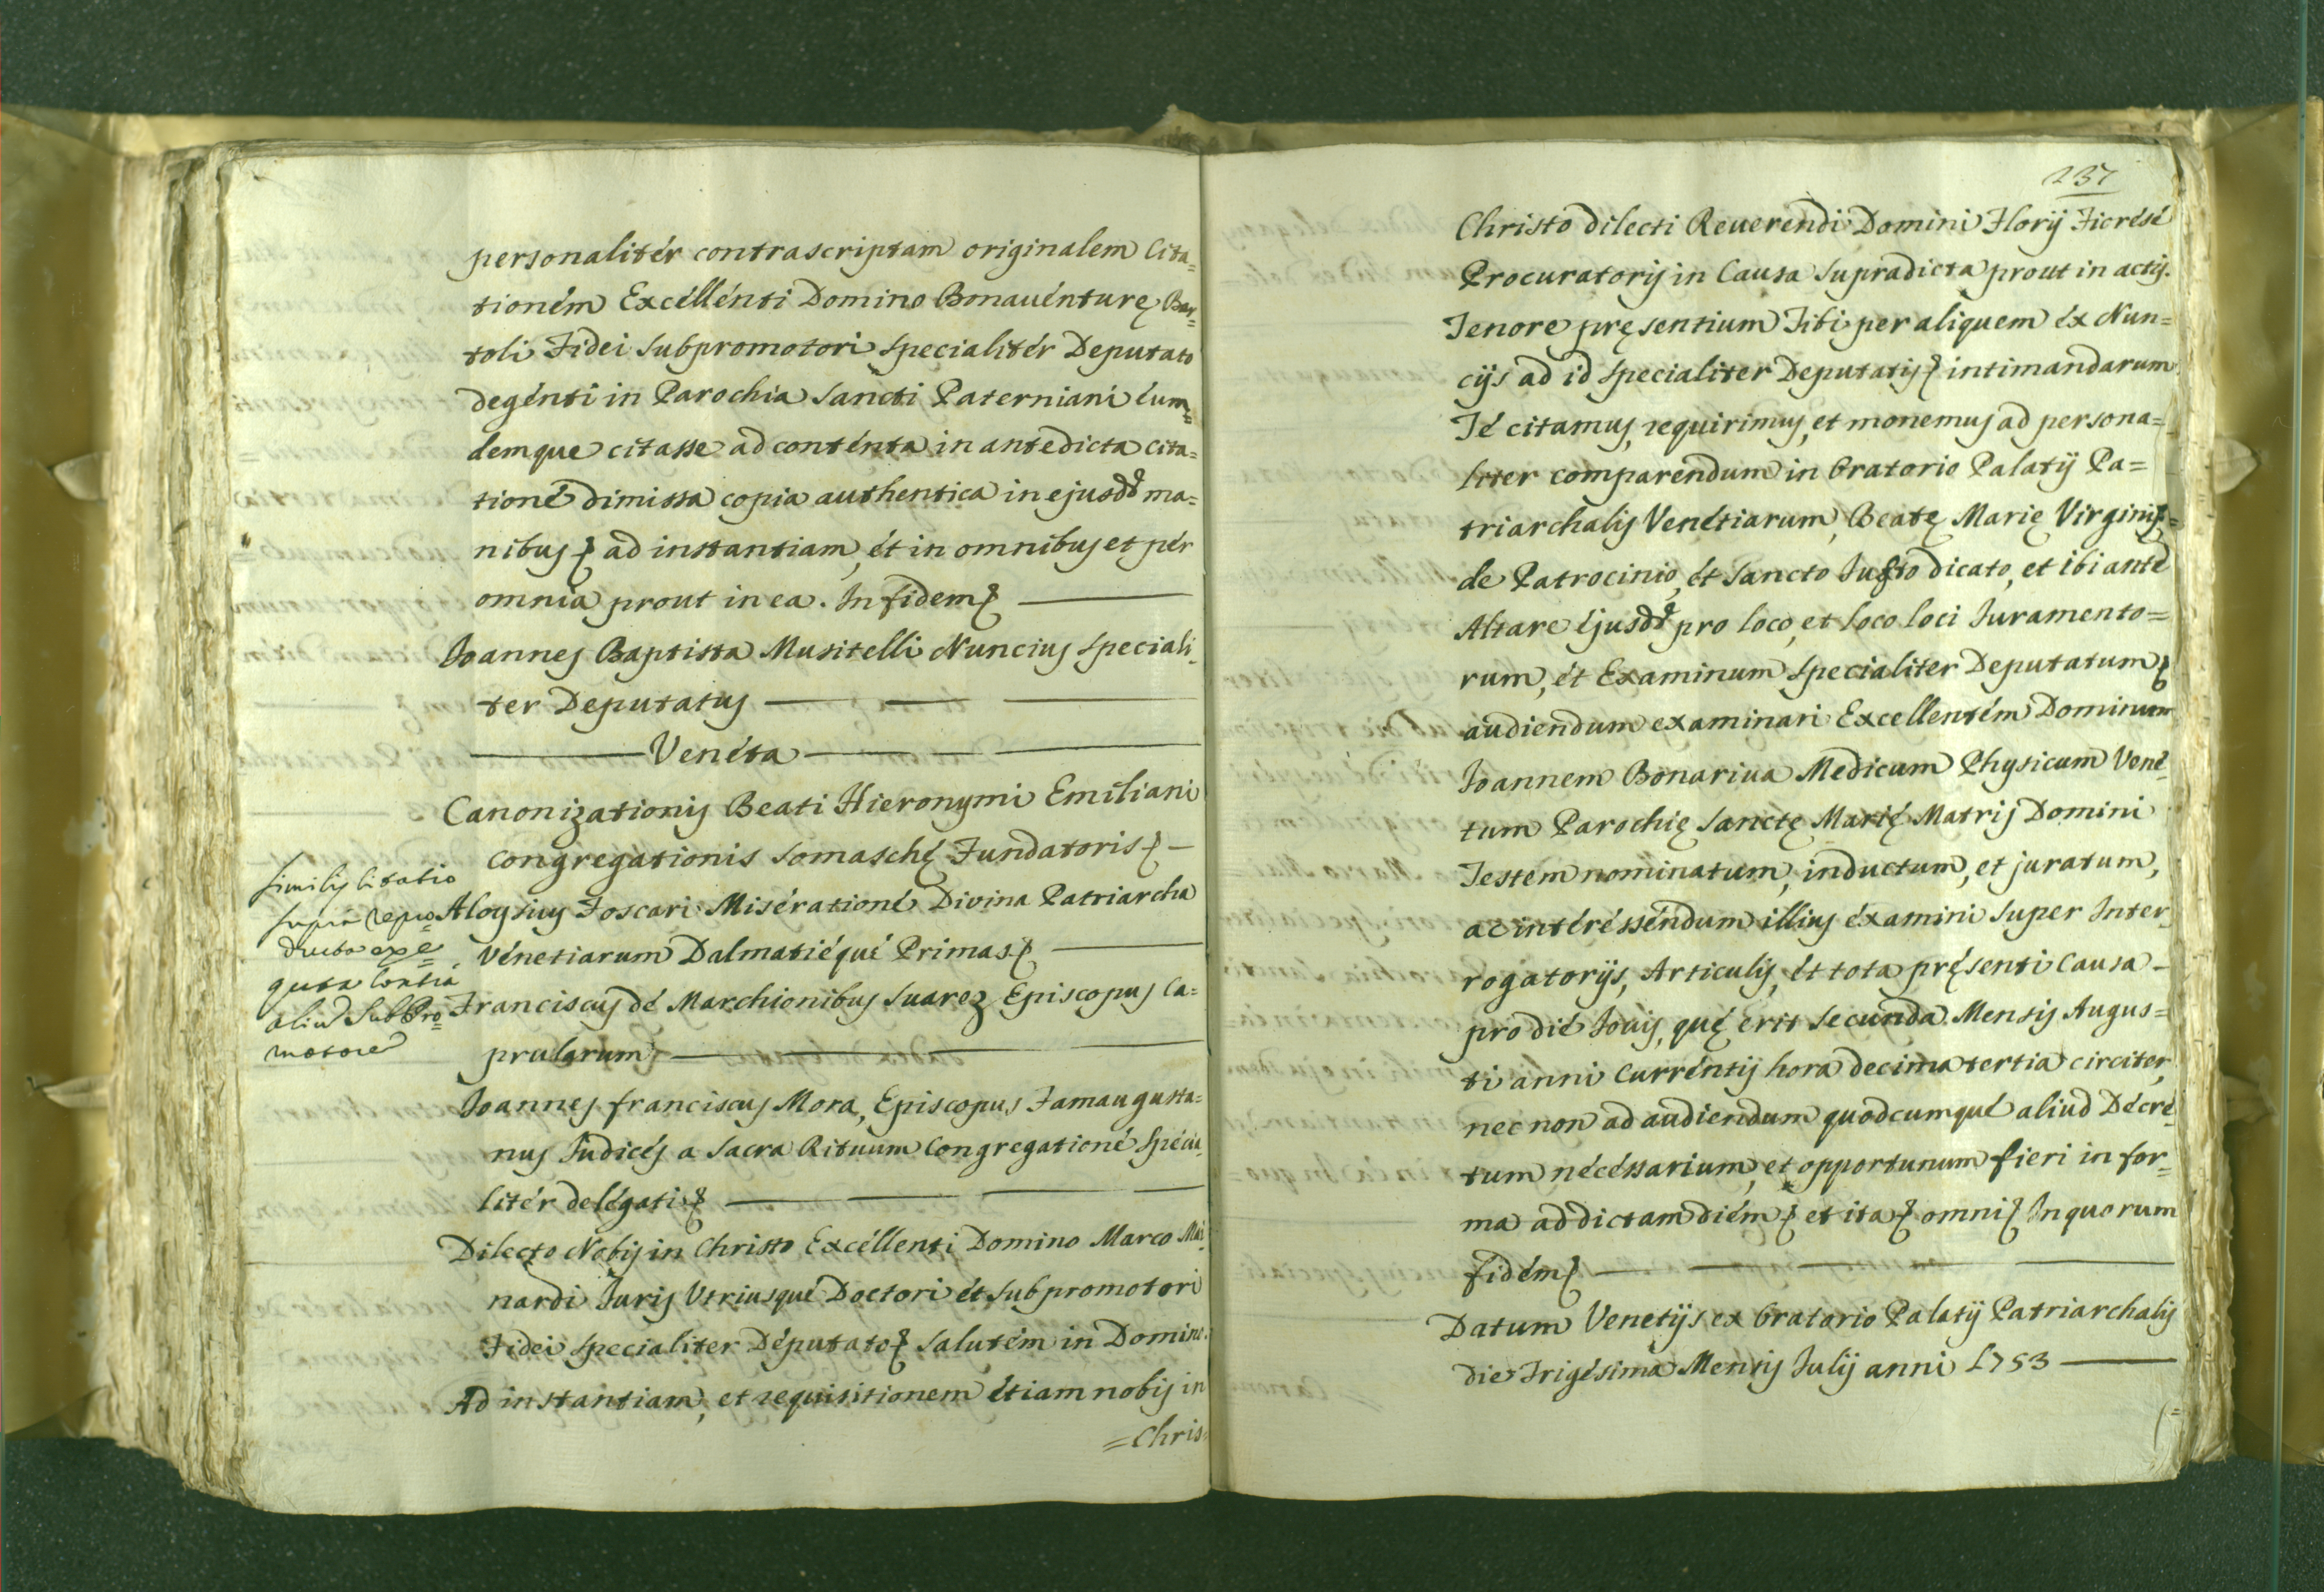 personalitér contrascriptam originalem Cita=
tioném Excéllénti Domino Bonauénturę Bar=
toli Fidei Subpromotori specialitér Deputato
degénti in Parochia Sancti Paterniani éum=
demque citasse ad conténta in antedicta cita=
tioné dimissa copia authentica in ejusdd ma=
nibus ad instantiam, ét in omnibus et pér
omnia prout in ea. In fidem
Joannes Baptista Musitelli Nuncius speciali=
ter Deputatus
Venéta
Canonizationis Beati Hieronymi Emiliani
Congregationis Somaschę Fundatoris
Similis Citatio
supra repro=
ducta exe=
quta contra
aliu Sub Pro=
motore
Aloysius Foscari Misérationé Divina Patriarcha
Vénetiarum Dalmatiéqué Primas
Franciscus dé Marchionibus Suarez Episcopus Ca=
prularum
Joannes franciscus Mora, Episcopus Famaugusta=
nus Judicés a Sacra Rituum Congregationé Specia=
litér delégati
Dilecto Nobis in Christo Excéllenti Domino Marco Mai=
nardi Juris Vtriusqué Doctori ét Subpromotori
Fidei specialiter Députato Salutém in Domino.
Ad instantiam, et requisitionem étiam nobis in
=Chris=
237
Christo dilecti Reuerendi Domini Florij Ficrésé
Procuratoris in Causa supradicta prout in actis.
Tenore pręsentium Tibi per aliquem éx Nun=
cijs ad id specialiter Deputatis intimandarum
Té citamus, requirimus, et monemus ad persona=
liter comparendum in Oratorio Palatij Pa=
triarchalis Venétiarum, Beatę Marię Virginis
de Patrocinio, ét Sancto Justo dicato, et ibi anté
Altare éjusdd pro loco, et loco loci Juramento=
rum, ét Examinum specialiter Deputatum
audiendum examinari Excellentém Dominum
Joannem Bonariua Medicum Physicum Vené=
tum Parochię Sanctę Marię Matris Domini
Testem nominatum, inductum, et juratum,
ac intéréssendum illius éxamini super Inter=
rogatorijs, Articulis, ét tota pręsenti Causa
pro dié Jouis, quę erit secunda Mensis Augus=
ti anni Curréntis hora decima tertia circiter,
nec non ad audiendum quodcumqué aliud Décré=
tum nécéssarium, et opportunum fieri in for=
ma ad dictam diém et ita omni In quorum
fidém
Datum Venetijs ex Oratorio Palatij Patriarchalis
die Trigésima Mensis Julij anni 1753